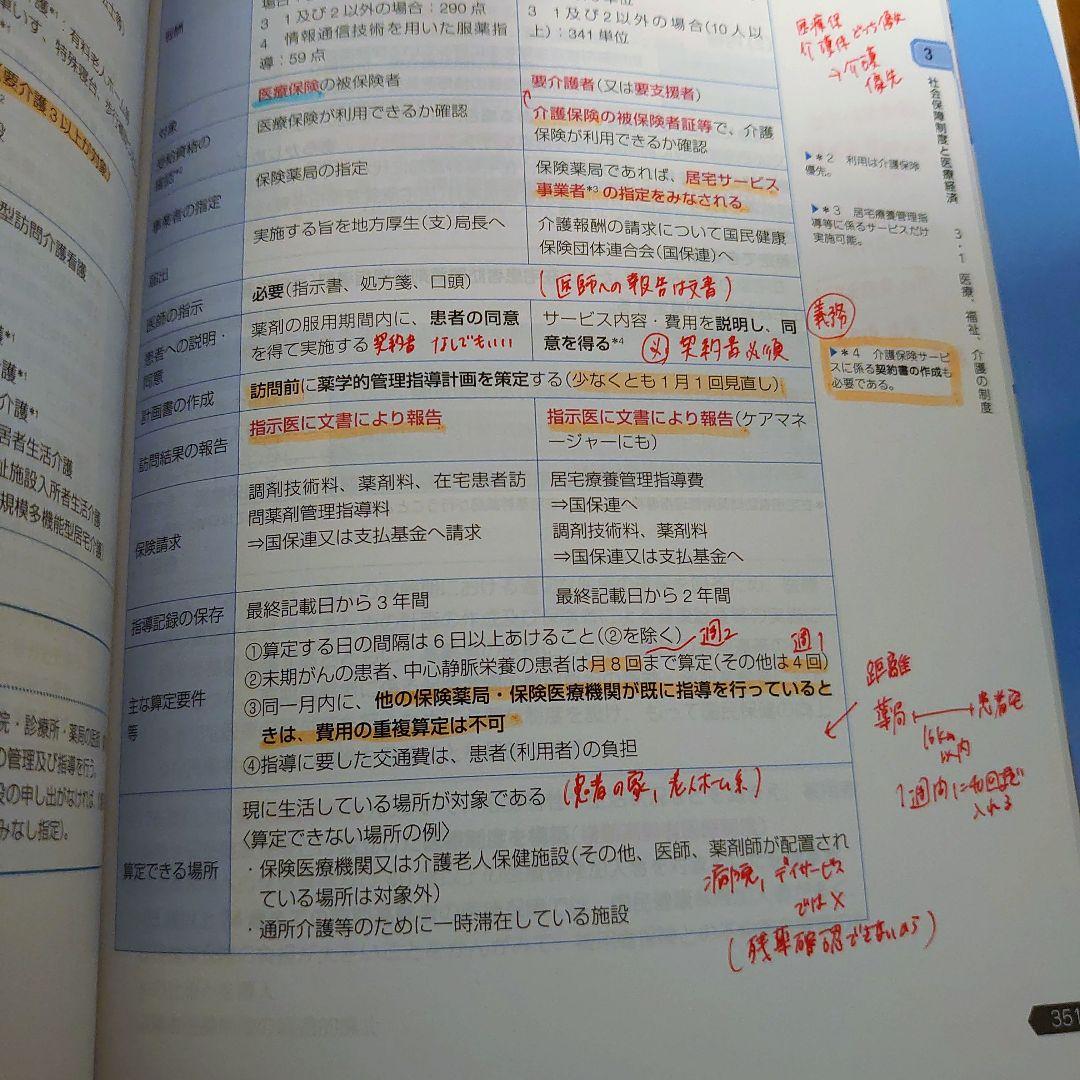 有料老人ホーム
特殊寝台、歩行
要介護3以上が対象
型訪問介護看護
護*¹
介護*¹
居者生活介護
祉施設入所者生活介護
規模多機能型居宅介護
院・診療所・薬局の医師
の管理及び指導を行う。
設の申し出がなければ、
みなし指定)。
報酬
3 1及び2以外の場合:290点
4 情報通信技術を用いた服薬指
導:59点
3 1及び2以外の場合(10人以
上):341単位
対象
医療保険の被保険者
要介護者(又は要支援者)
受給資格の
確認*²
医療保険が利用できるか確認
介護保険の被保険者証等で、介護
保険が利用できるか確認
事業者の指定
保険薬局の指定
保険薬局であれば、居宅サービス
事業者*³の指定をみなされる
届出
実施する旨を地方厚生(支)局長へ
介護報酬の請求について国民健康
保険団体連合会(国保連)へ
医師の指示
必要(指示書、処方箋、口頭)
(医師への報告は文書)
患者への説明・
同意
薬剤の服用期間内に、患者の同意
を得て実施する 契約書 なしでもいい
サービス内容・費用を説明し、同
意を得る*⁴ 契約書必須
計画書の作成
訪問前に薬学的管理指導計画を策定する(少なくとも1月1回見直し)
訪問結果の報告
指示医に文書により報告
指示医に文書により報告(ケアマネ
ージャーにも)
保険請求
調剤技術料、薬剤料、在宅患者訪
問薬剤管理指導料
⇒国保連又は支払基金へ請求
居宅療養管理指導費
⇒国保連へ
調剤技術料、薬剤料
⇒国保連又は支払基金へ
指導記録の保存
最終記載日から3年間
最終記載日から2年間
主な算定要件
等
①算定する日の間隔は6日以上あけること(②を除く) 週2 週1
②末期がんの患者、中心静脈栄養の患者は月8回まで算定(その他は4回)
③同一月内に、他の保険薬局・保険医療機関が既に指導を行っていると
きは、費用の重複算定は不可
④指導に要した交通費は、患者(利用者)の負担
算定できる場所
現に生活している場所が対象である (患者の家, 老人ホーム系)
〈算定できない場所の例〉
・保険医療機関又は介護老人保健施設(その他、医師、薬剤師が配置され
ている場所は対象外)
・通所介護等のために一時滞在している施設
病院, デイサービス
では×
(残薬確認できないから)
医療保
介護保 どっち優先
→介護
優先
▶*2 利用は介護保険
優先。
▶*3 居宅療養管理指
導等に係るサービスだけ
実施可能。
義務
▶*4 介護保険サービ
スに係る契約書の作成も
必要である。
距離
薬局 患者宅
16km
以内
3
社会保障制度と医療経済
3・1 医療、福祉、介護の制度
351